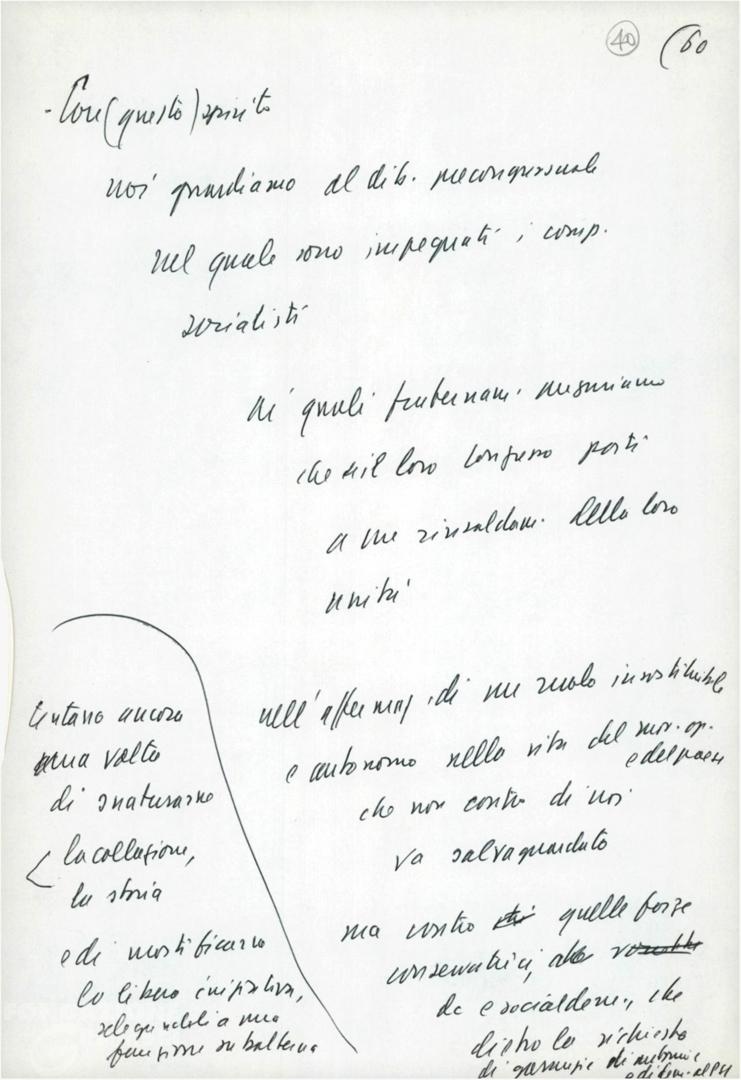 40 (60
- Con (questo) spirito
noi guardiamo al dib. precongressuale
nel quale sono impegnati i comp.
socialisti
ai quali fraternam. auguriamo
che il loro Congresso porti
a un rinsaldam. della loro
unità
nell'affermaz. di un ruolo insostituibile
e autonomo nella vita del mov. op.
e del paese
che non contro di noi
va salvaguardato
ma contro quelle forze
conservatrici,
dc e socialdem., che
dietro la richiesta
di garanzie di autonomia
e di dem. al PSI
tentano ancora
una volta
di snaturarne
la collazione,
la storia
e di mortificarne
la libera iniziativa,
relegandoli a una
funzione subalterna